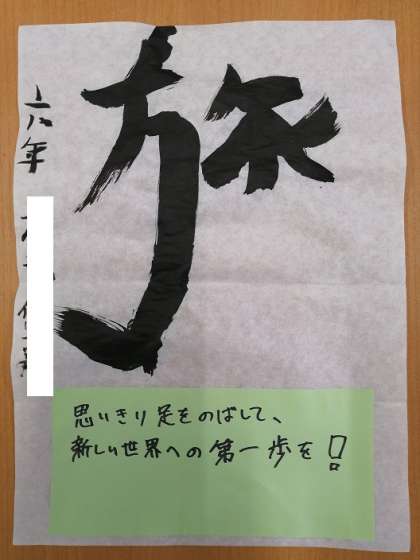 旅
六年
思いきり足をのばして、
新しい世界への第一歩を！